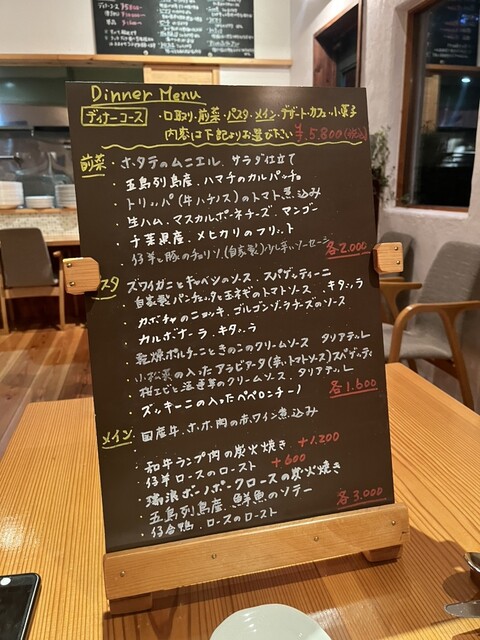 Dinner Menu
ディナーコース ・口取り・前菜・パスタ・メイン・デザート・カフェ・小菓子
内容は下記よりお選び下さい ¥5.800(税込)
前菜 ・ホタテのムニエル、サラダ仕立て
・五島列島産、ハマチのカルパッチョ
・トリッパ(牛ハチノス)のトマト煮込み
・生ハム、マスカルポーネチーズ、マンゴー
・千葉県産、メヒカリのフリット
・仔羊と豚のチョリソ(自家製)少し辛いソーセージ 各2.000
スタ ズワイガニとキャベツのソース、スパゲティーニ
・自家製パンチェッタと玉ネギのトマトソース、キタッラ
・カボチャのニョッキ、ゴルゴンゾーラチーズのソース
・カルボナーラ、キタッラ
・乾燥ポルチーニときのこのクリームソース タリアテッレ
・小松菜の入ったアラビアータ(辛いトマトソース)スパゲッティ
・桜エビと のクリームソース、タリアテッレ
・ズッキーニの入ったペペロンチーノ 各1.600
メイン ・国産牛、ホホ肉の赤ワイン煮込み
・和牛ランプ肉の炭火焼き +1.200
・仔羊ロースのロースト +600
・瑞浪ボーノポークロースの炭火焼き
・五島列島産、鮮魚のソテー
・仔合鴨、ロースのロースト 各3.000